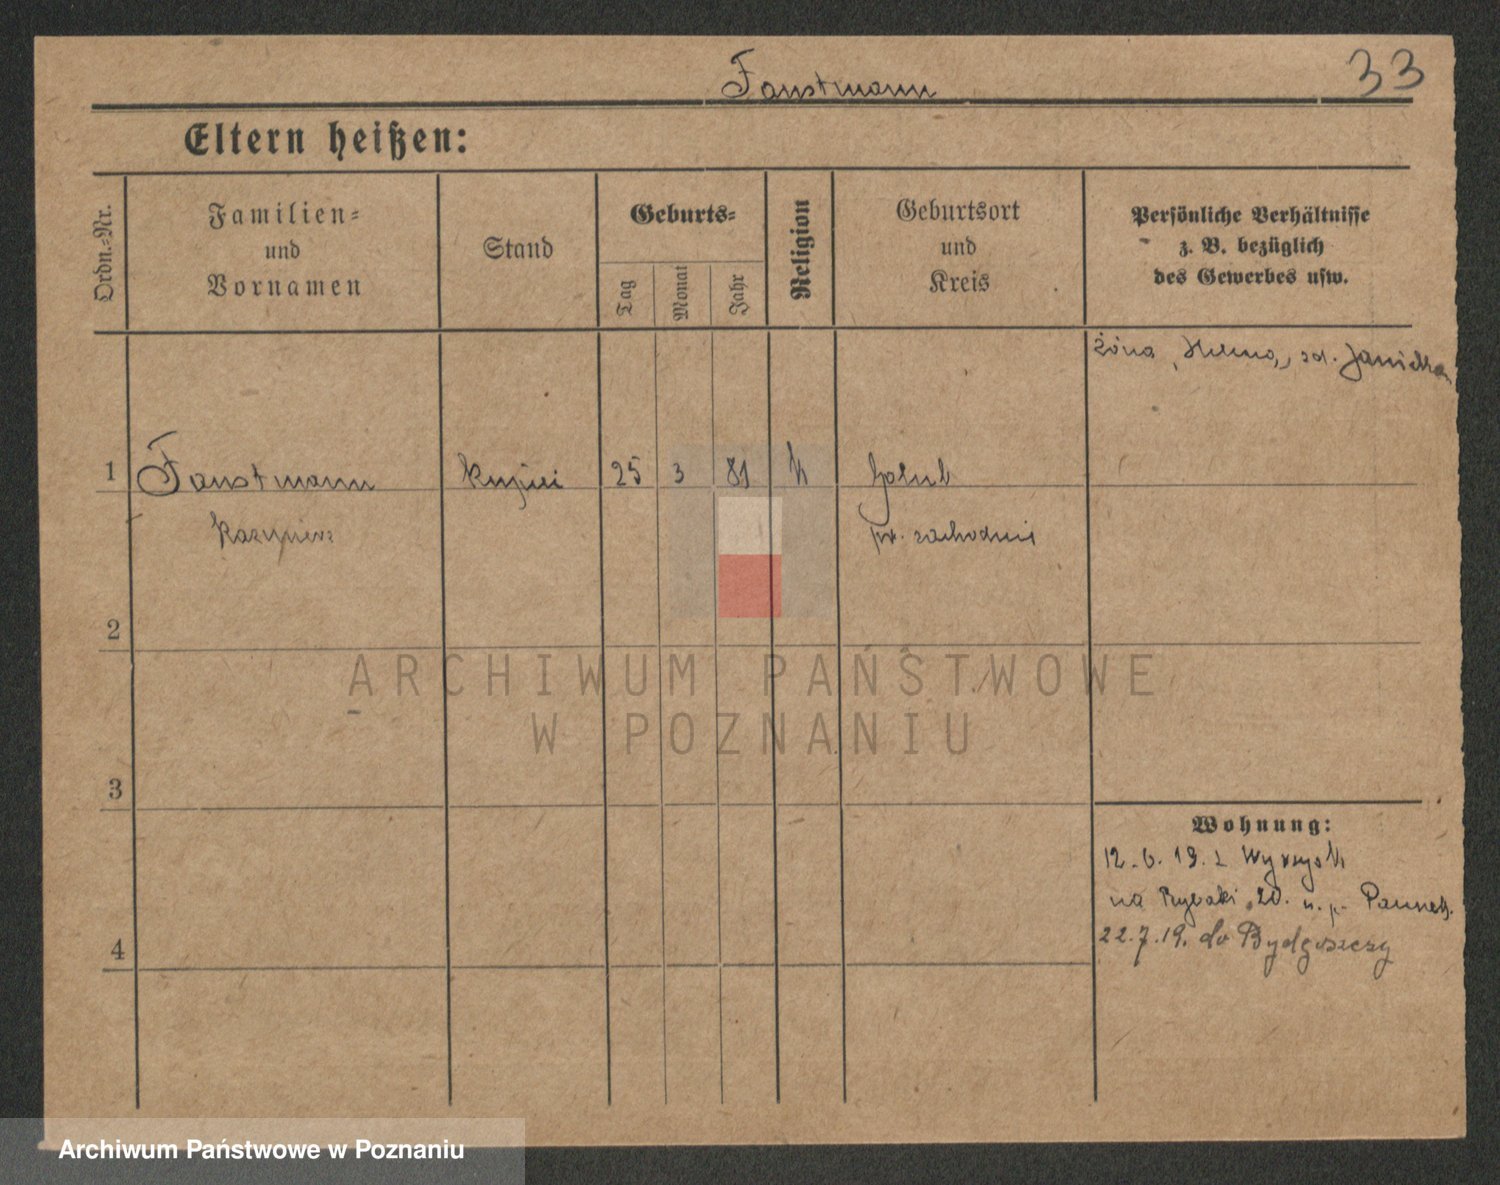 Faustmann
33
Eltern heißen:
Ordn.-Nr.
Familien-
und
Vornamen
Stand
Geburts-
Tag
Monat
Jahr
Religion
Geburtsort
und
Kreis
Persönliche Verhältnisse
z. B. bezüglich
des Gewerbes usw.
żona, Helena,
1
Faustmann
kupiec
25
3
81
k
Golub
Kazimierz
pr. zachodnie
2
ARCHIWUM PAŃSTWOWE
W POZNANIU
3
Wohnung:
12.6.19. z Wyrzysk
na Rybaki 20.
4
22.7.19. do Bydgoszczy
Archiwum Państwowe w Poznaniu